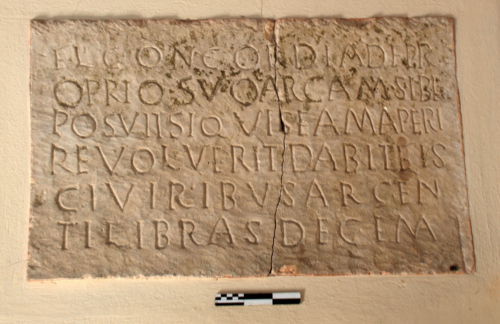 FL CONCORDIA DE PR
OPRIO SVO ARCAM SIBI
POSVIT SI QVIS EAM APERI
RE VOLVERIT DABIT BIS
CI VIRIBVS ARGEN
TI LIBRAS DECEM